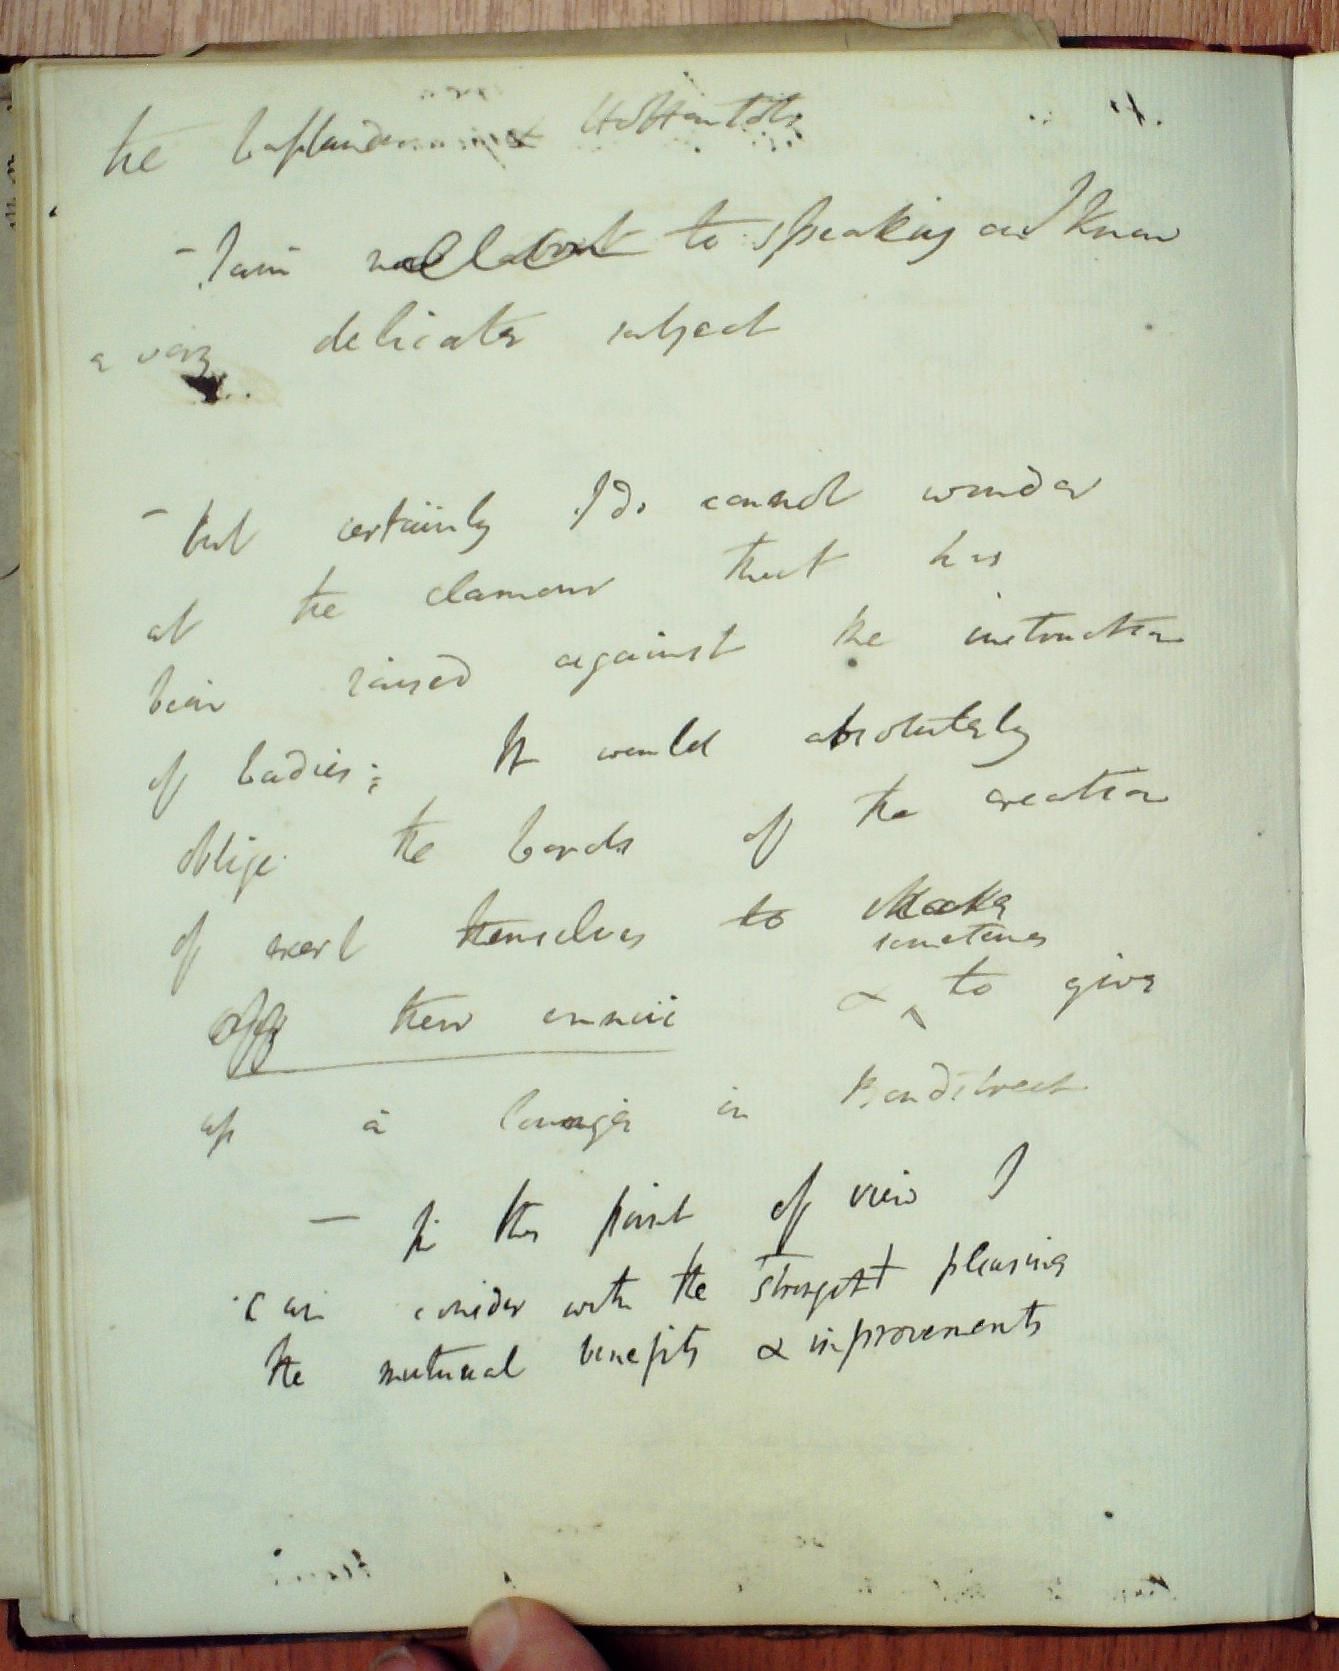 the Laplanders & Hottentots
- I am to speaking on I know
a very delicate subject
- but certainly I do cannot wonder
at the clamour that has
been raised against the instruction
of Ladies; It would absolutely
oblige the Lords of the creation
of exert themselves to shake
off their ennui & sometimes to give
up a lounge in Bondstreet
- In this point of view I
can consider with the strongest pleasure
the mutual benefits & improvements